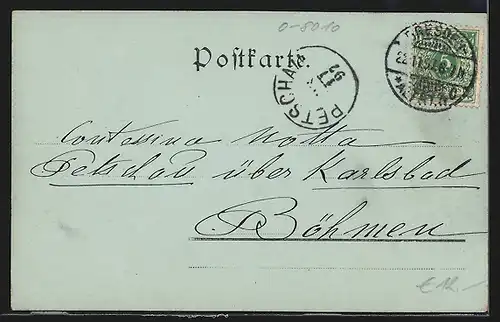 0-5010
Postkarte.
DRESDEN
PETSCHAU
97
Contessina Notta
Petschau über Karlsbad
Böhmen
€ 12.-